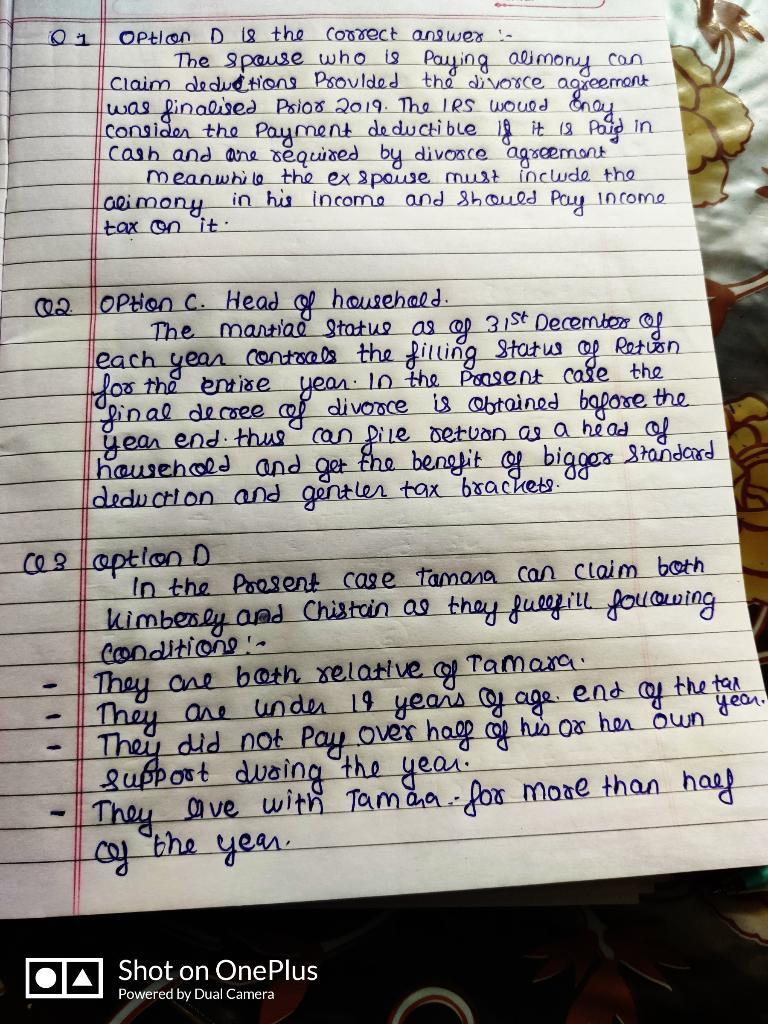 Q 1 Option D is the correct answer :-
The spouse who is Paying alimony can
claim deductions Provided the divorce agreement
was finalised Prior 2019. The IRS would only
consider the Payment deductible if it is Paid in
cash and are required by divorce agreement
meanwhile the ex spouse must include the
alimony in his income and should Pay income
tax on it.
Q2 Option C. Head of household.
The martial status as of 31st December of
each year controls the filling status of Return
for the entire year. In the Present case the
final decree of divorce is obtained before the
year end. thus can file return as a head of
household and get the benefit of bigger standard
deduction and gentler tax brackets.
Q 3 option D
In the Present case Tamara can claim both
Kimberly and Chistain as they fullfill following
conditions :-
- They are both relative of Tamara.
- They are under 19 years of age. end of the tax year.
- They did not Pay over half of his or her own
support during the year.
- They live with Tamara - for more than half
of the year.
Shot on OnePlus
Powered by Dual Camera